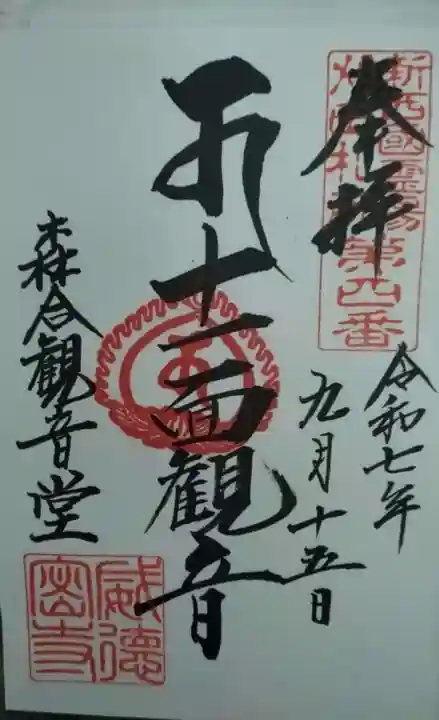 奉拝
新西國霊場
札所第四番
令和七年
九月十五日
十一面観音
森合観音堂
威徳
密寺